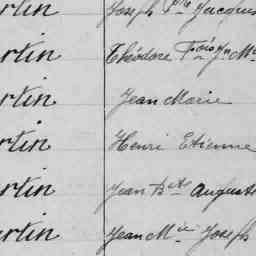 rtin Joseph Fois Jacques
artin Théodore Fois Jn M
rtin Jean Marie
rtin Henri Etienne
artin Jean Bte Auguste
artin Jean Mie Joseph